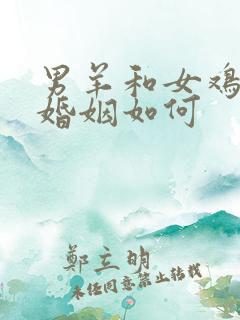 男羊和女鸡
婚姻如何
鄭立明
未经同意禁止转载